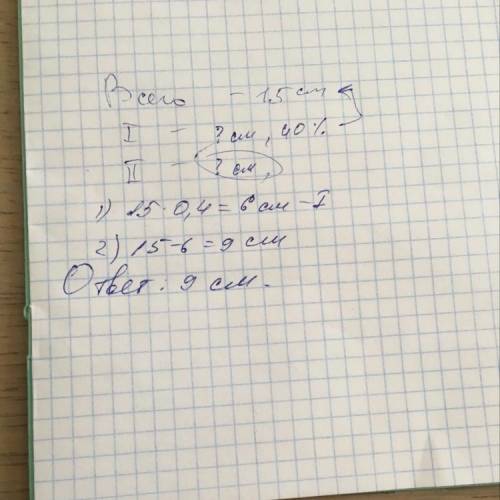 Всего - 15 см
I - ? см, 40%
II - ? см,
1) 15 · 0,4 = 6 см - I
2) 15 - 6 = 9 см
Ответ: 9 см.